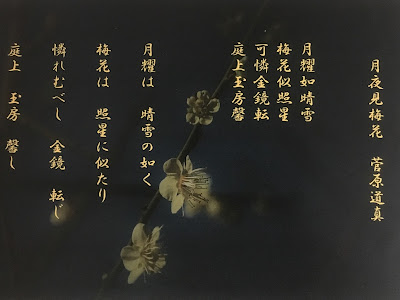 月夜見梅花　菅原道真
月耀如晴雪
梅花似照星
可憐金鏡転
庭上玉房馨
月耀は　晴雪の如く
梅花は　照星に似たり
憐れむべし　金鏡　転じ
庭上　玉房　馨し